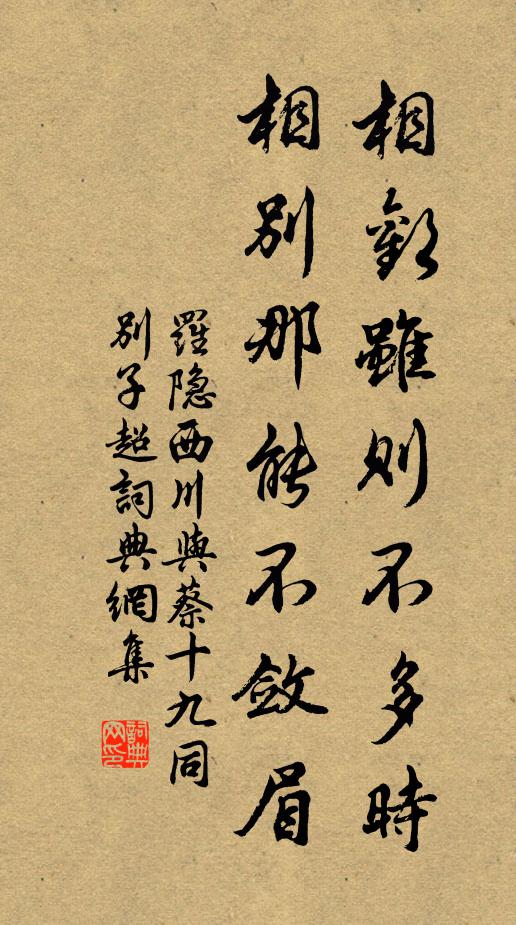 相歡雖則不多時
相別那能不斂眉
羅隱西川與蔡十九同
別子超詞典網集
詞典
网印